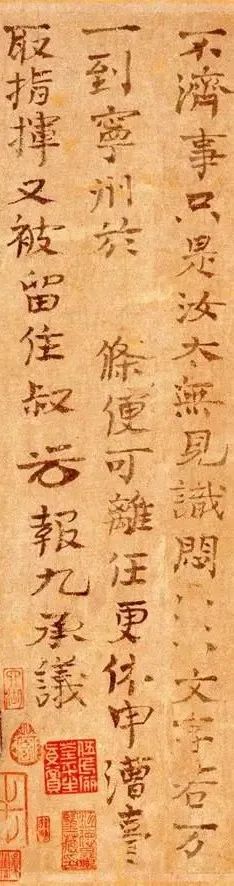 不濟事只是汝太無見識悶〻〻文字若万
一到寧州於　條便可離任更休申漕臺
取指揮又被留住叔報九承議